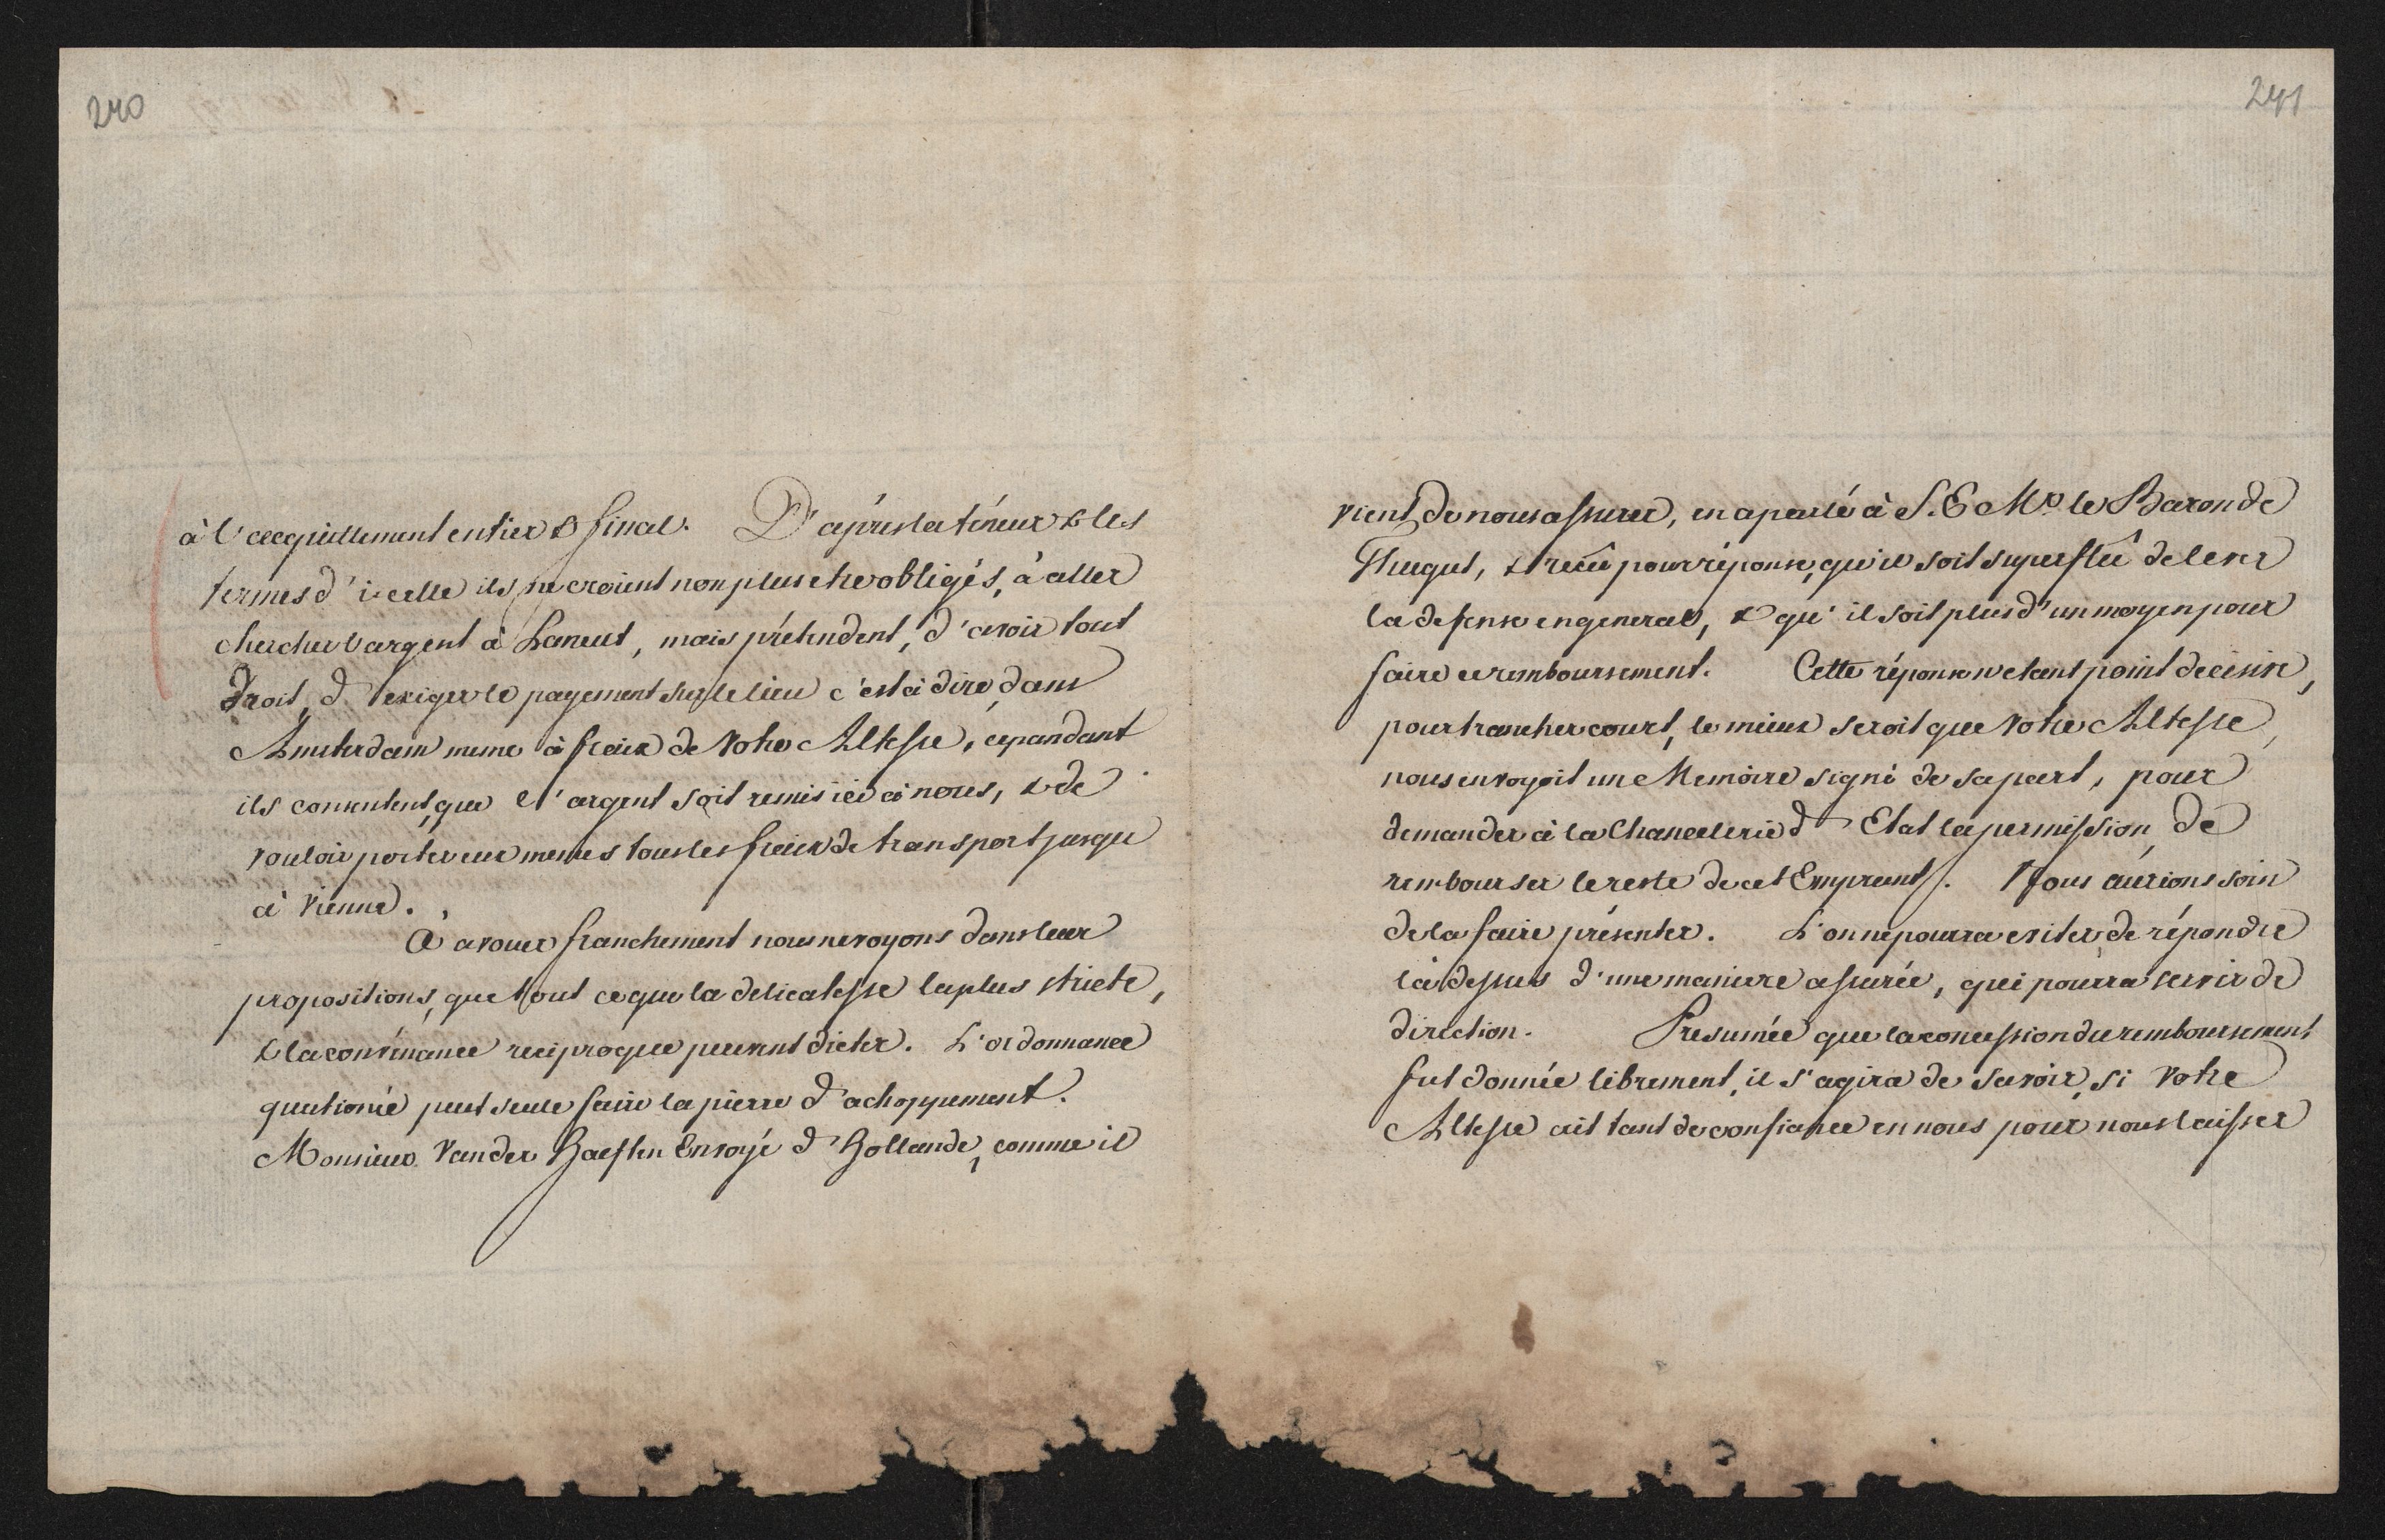 240
à l'acquittement entier & final. D'après la téneur & les
termes d'icelle ils ne croient non plus etre obligés, à aller
chercher l'argent à Lancut, mais prétendent, d'avoir tout
droit, d'exiger le payement sur le lieu c'est à dire, dans
Amsterdam meme à fraix de Votre Altesse, cependant
ils consentent, que l'argent soit remis ici à nous, & de
vouloir porter eux memes tous les fraix de transport jusqu
à Vienne.
à avouer franchement nous ne voyons dans leur
propositions, que tout ce que la delicatesse la plus stricte,
& la convénance reciproque peuvent dicter. L'ordonnance
quationée peut seule faire la pierre d'achoppement.
Monsieur Vander Haeften Envoyé d'Hollande, comme il
241
vient de nous assurer, en a parlé à S. E Mr. le Baron de
Thugut, & recû pour réponse, qu'il soit superflû de lever
la defense en general, & qu'il soit plus d'un moyen pour
faire ce remboursement. Cette réponse n'etant point decisive,
pour trancher court, le mieux seroit que Votre Altesse,
nous envoyoit un Memoire signé de sa part, pour
demander à la Chancelerie d'Etat la permission, de
rembourser le reste de cet Emprunt. Nous aurions soin
de la faire présenter. L'on ne pourra eviter, de répondre
là dessus d'une maniere assurée, qui pourra servir de
direction. Presumée que la concession du remboursement
fut donnée librement, il s'agira de savoir, si Votre
Altesse ait tant de confiance en nous pour nous laisser